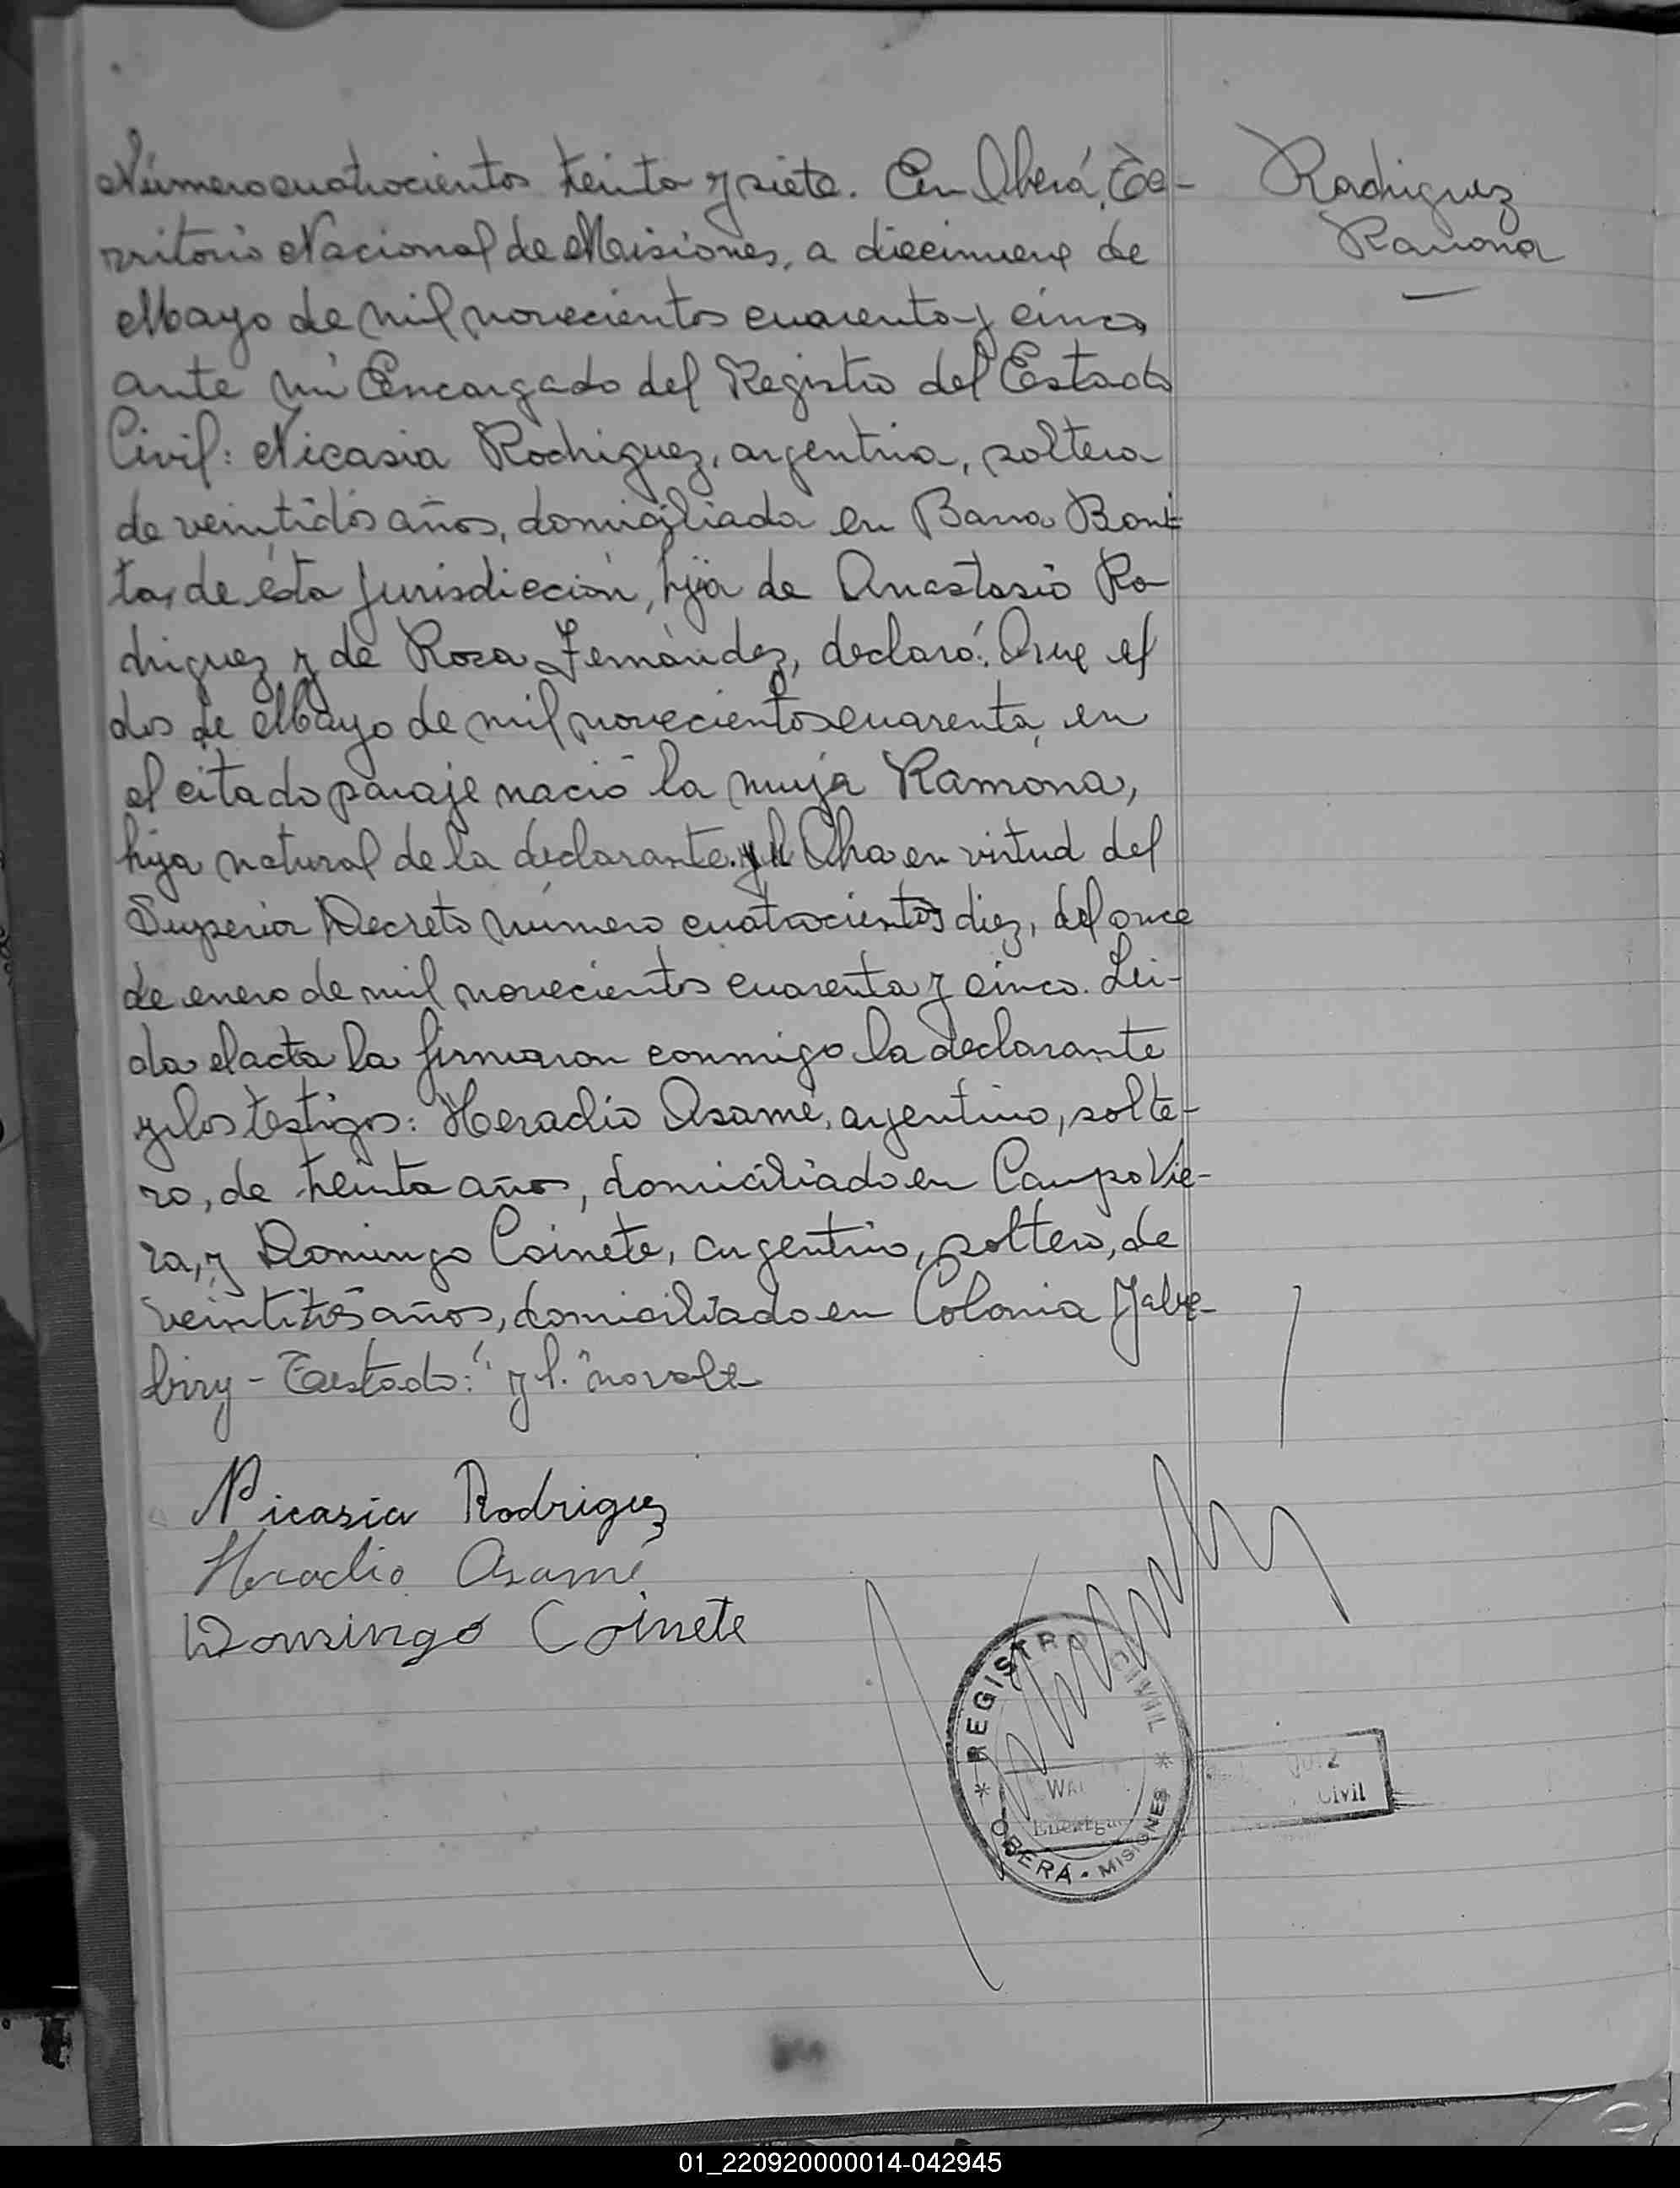 Número cuatrocientos treinta y siete. En Oberá, Te-
rritorio Nacional de Misiones, a diecinueve de
Mayo de mil novecientos cuarenta y cinco,
ante mi Encargado del Registro del Estado
Civil: Nicasia Rodriguez, argentina, soltera
de veintidós años, domiciliada en Barra Boni-
ta, de ésta jurisdiccion, hija de Anastasio Ro-
driguez y de Rosa Fernández, declaró: Que el
dos de Mayo de mil novecientos cuarenta, en
el citado paraje nació la mujer Ramona,
hija natural de la declarante. y l Obra en virtud del
Superior Decreto número cuatrocientos diez, del once
de enero de mil novecientos cuarenta y cinco. Lei-
da el acta la firmaron conmigo la declarante
y los testigos: Heraclio Asamé, argentino, solte-
ro, de treinta años, domiciliado en Campo Vie-
ra, y Domingo Coinete, argentino, soltero, de
veintitrés años, domiciliado en Colonia Yabe-
biry - Testado: "y l." no vale
Rodriguez
Ramona
Nicasia Rodriguez
Heraclio Asamé
Domingo Coinete
REGISTRO CIVIL
OBERÁ - MISIONES
Civil
01_220920000014-042945